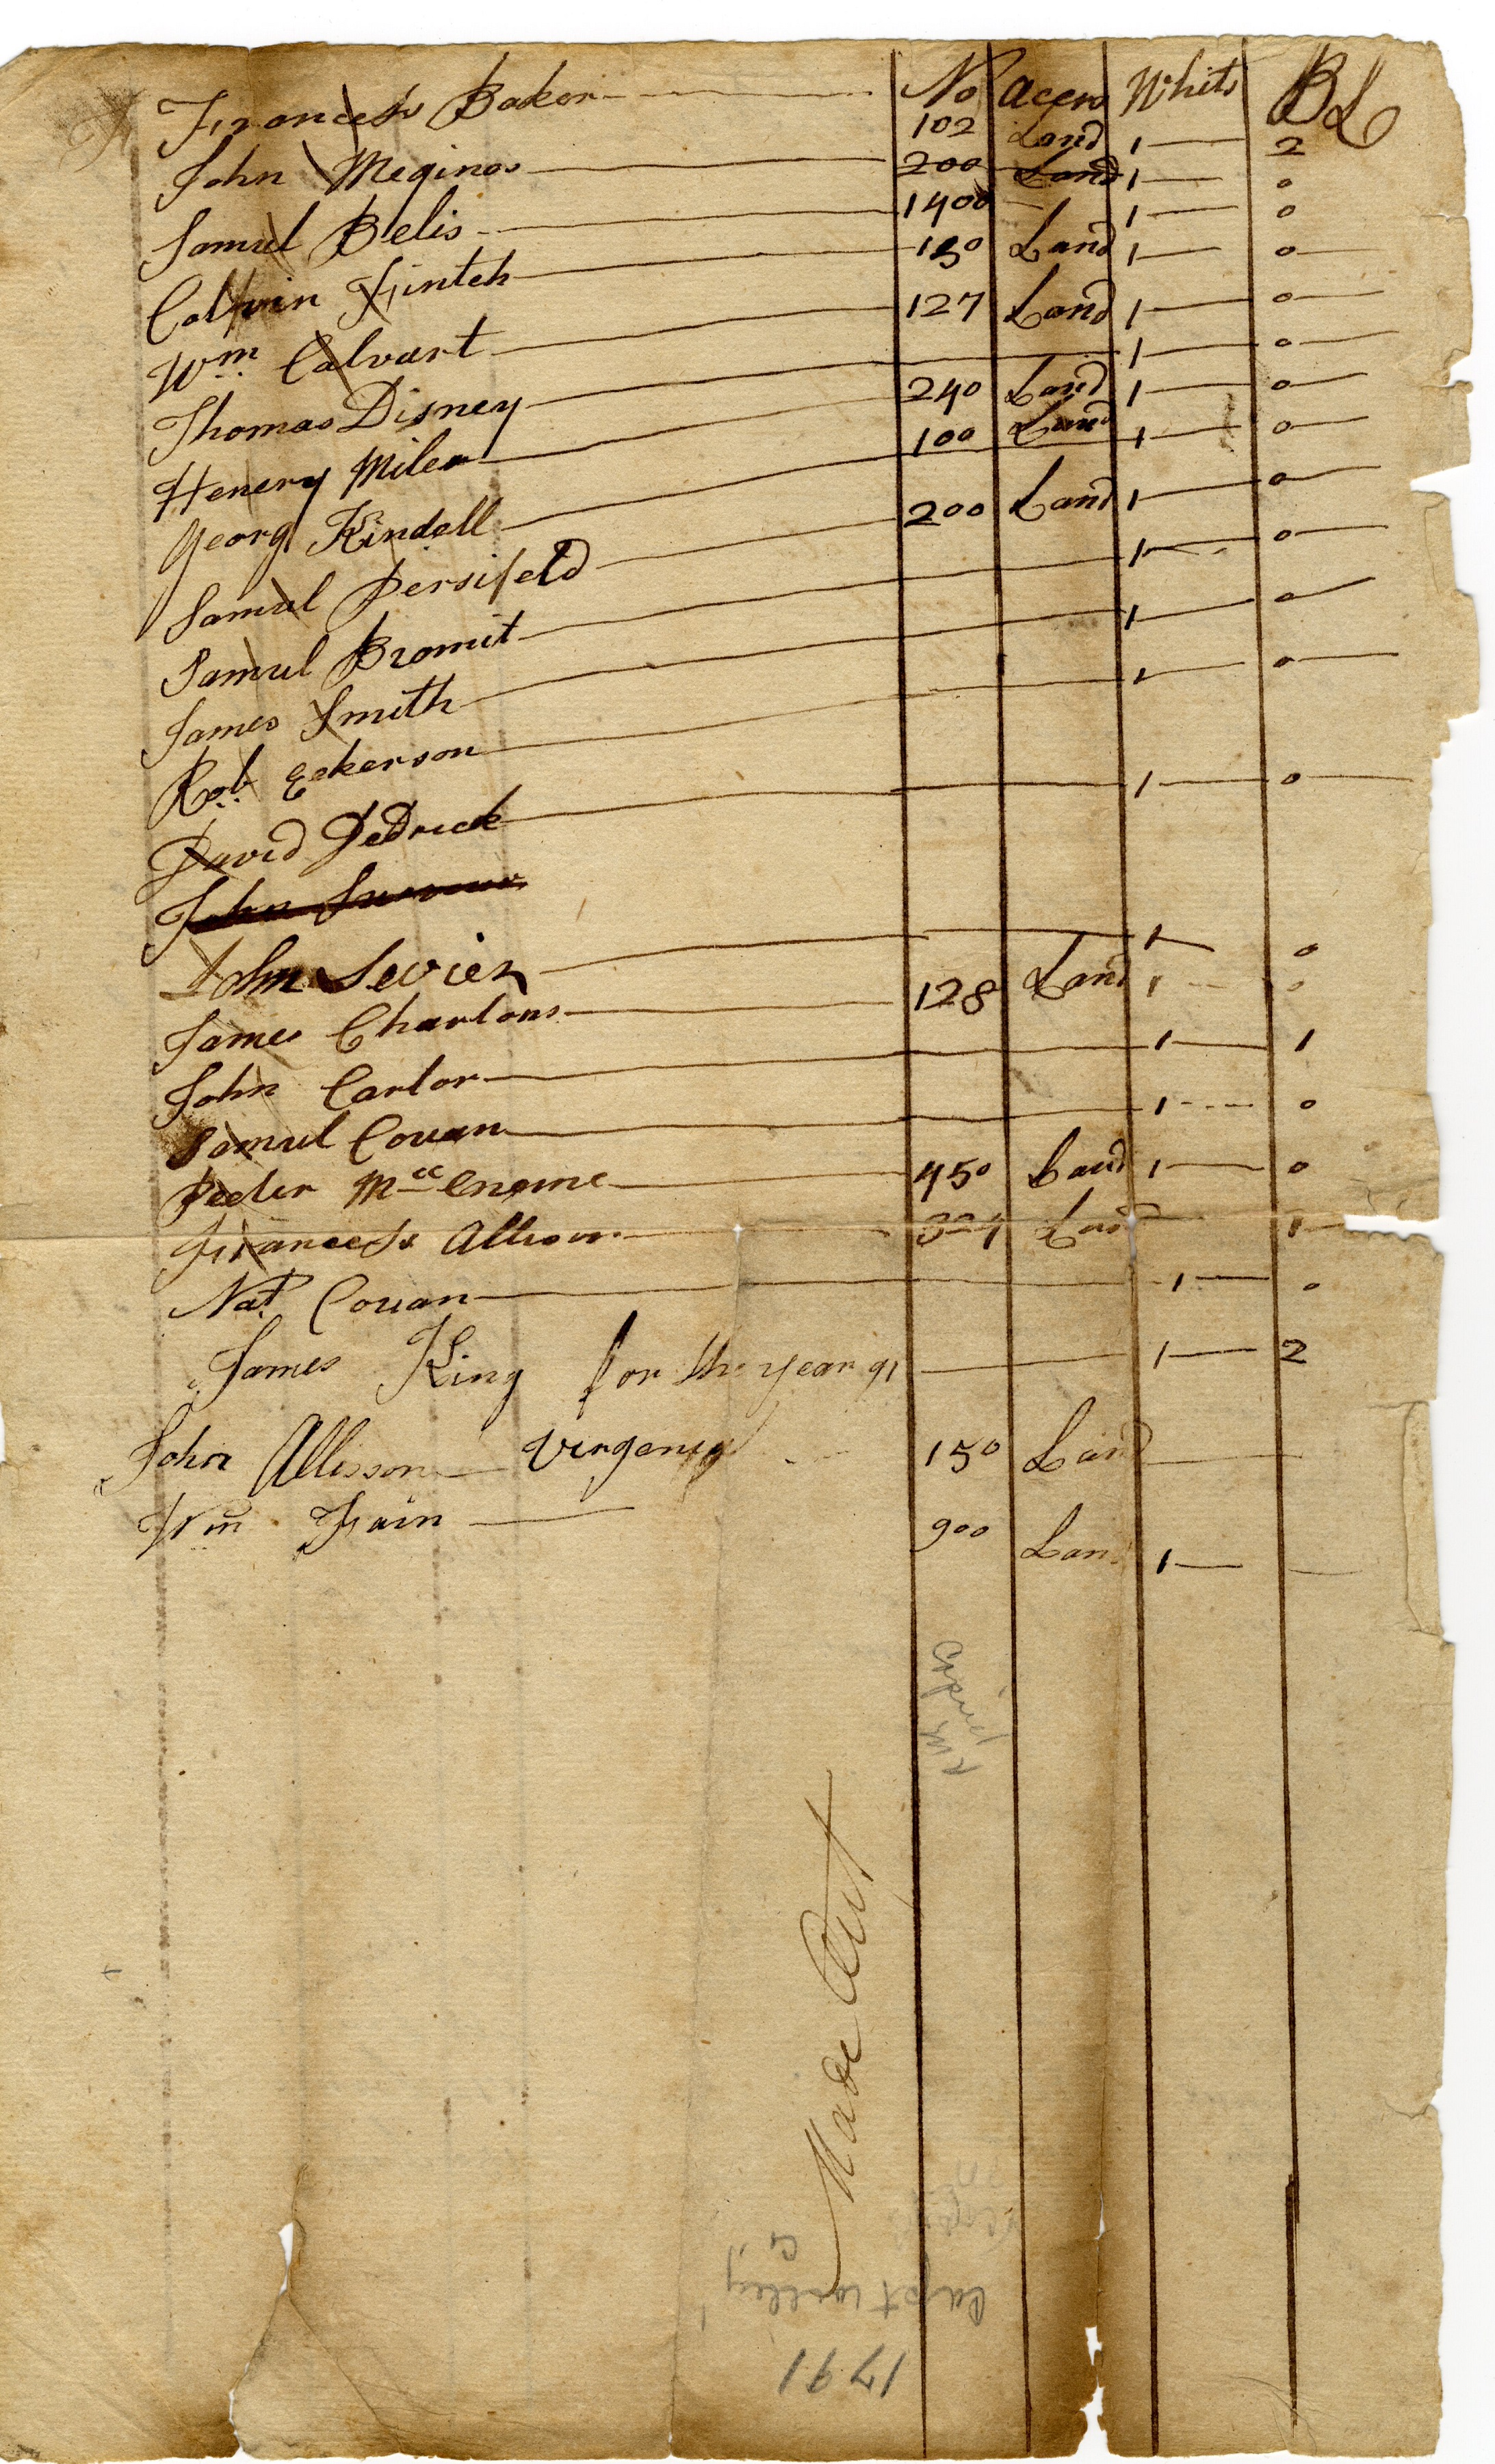 No Acers Whits BL
Frances Baker 102 Land 1 2
John Meginos 200 Land 1 0
Samul Belis 1400 1 0
Calvin Finteh 150 Land 1 0
Wm Calvart 127 Land 1 0
Thomas Disney 1 0
Henery Miler 240 Land 1 0
Georg Kindell 100 Land 1 0
Samul Persifeld 200 Land 1 0
Samul Bromit 1 0
James Smith 1 0
Rob Eakerson 1 0
David Dedrick 1 0
John
John Sevier 1 0
James Charlons 128 Land 1 0
John Carter 1 1
Samul Couan 1 0
Peeter Mcc 450 Land 1 0
Francess Allison Land 1
Nat Couan 1 0
James King for the year 91 1 2
John Allisson Virgenia 150 Land
Wm Fain 900 Land 1
Copied
Made Out
Capt
1791